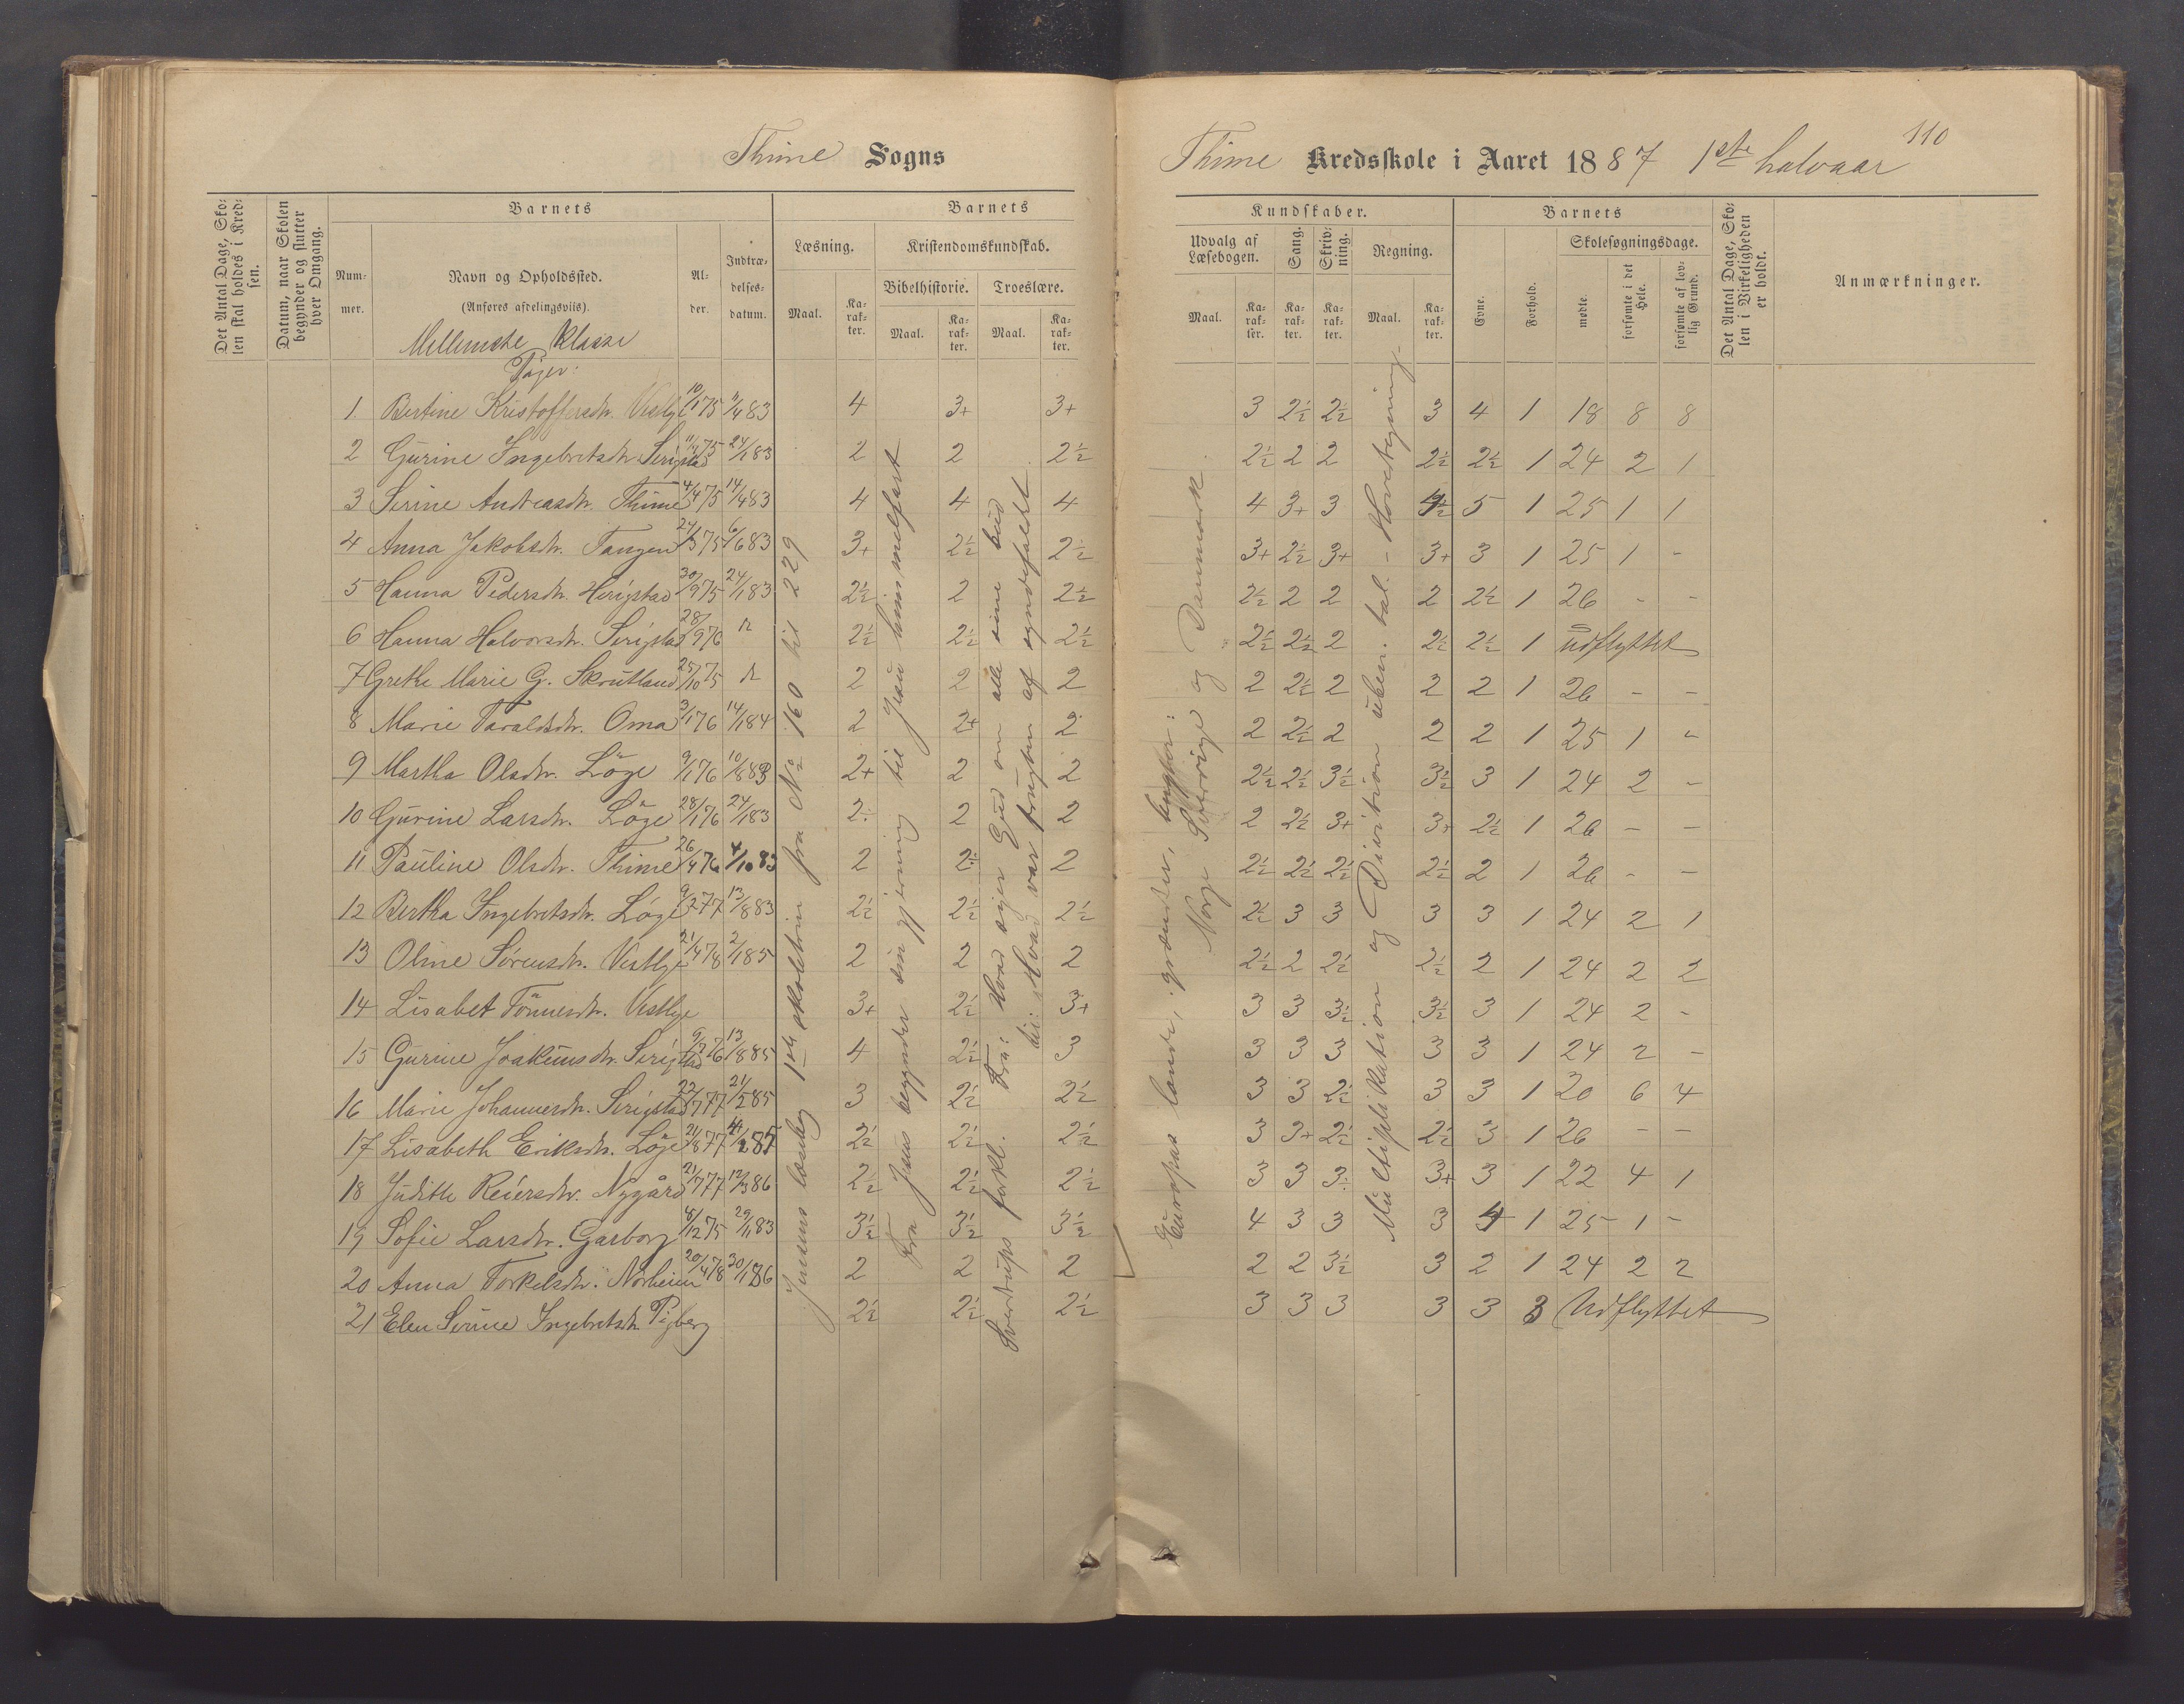 110
Thime Sogns
Thime Kredsskole i Aaret 1887 1ste halvaar
Det Antal Dage, Skolen skal holdes i Kredsen.
Datum, naar Skolen begynder og slutter hver Omgang.
Barnets
Nummer.
Navn og Opholdssted.
(Anføres afdelingsvils).
Alder.
Indtrædelsesdatum.
Barnets
Læsning.
Maal.
Karakter.
Kristendomskundskab.
Bibelhistorie.
Maal.
Karakter.
Troeslære.
Maal.
Karakter.
Kundskaber.
Udvalg af Læsebogen.
Maal.
Karakter.
Sang.
Karakter.
Skrivning.
Karakter.
Regning.
Maal.
Karakter.
Barnets
Evne.
Forhold.
Skolesøgningsdage.
mødte.
forsømte i det Hele.
forsømte af lovlig Grund.
Det Antal Dage, Skolen i Virkeligheden er holdt.
Anmærkninger.
Mellemste Klasse
Piger:
1 Bertine Kristoffersdtr. Vestly 10/1 75 11/4 83 4 3+ 3+ 3 2½ 2½ 3 4 1 18 8 8
2 Gurine Ingebretsdtr. Serigstad 75 24/1 83 2 2 2½ 2½ 2 2 2½ 2½ 1 24 2 1
3 Serine Andreasdtr. Thime 4/4 75 14/4 83 4 4 4 4 3+ 3 5 1 25 1 1
4 Anna Jakobsdtr. Tangen 24/5 75 6/6 83 3+ 2½ 2½ 3+ 2½ 3+ 3+ 3 1 25 1 -
5 Hanna Pedersdtr. Herigstad 30/9 75 24/1 83 2½ 2 2½ 2½ 2 2 2 2½ 1 26 - -
6 Hanna Halvorsdtr. Serigstad 28/9 76 2½ 2½ 2½ 2½ 2½ 2 2½ 2½ 1 udflyttet
7 Grethe Marie G. Skrutland 25/10 75 2 2 2 2 2½ 2 2 2 1 26 - -
8 Marie Taraldsdtr. Oma 3/1 76 14/1 84 2 2+ 2 2 2½ 2 2 2 1 25 1 -
9 Martha Olsdtr. Löge 9/1 76 10/8 83 2+ 2 2 2½ 2½ 3½ 3½ 3 1 24 2 -
10 Gurine Larsdtr. Löge 28/1 76 24/1 83 2÷ 2 2 2 2½ 3+ 3+ 2½ 1 26 - -
11 Pauline Olsdtr. Thime 26/4 76 4/10 83 2 2÷ 2 2½ 2½ 2½ 2½ 2 1 26 - -
12 Bertha Ingebretsdtr. Löge 9/2 77 13/8 83 2½ 2½ 2½ 2½ 3 3 3 3 1 24 2 1
13 Oline Sörensdtr. Vestlye 21/4 78 2/1 85 2 2 2 2½ 2 2½ 2½ 2 1 24 2 2
14 Lisabet Tönnesdtr. Vestlye 3+ 2½ 3+ 3 3 3½ 3½ 3 1 24 2 -
15 Gurine Joakimsdtr. Serigstad 76 13/8 85 4 2½ 3 3 3 3 3 3 1 24 2 -
16 Marie Johannesdtr. Serigstad 22/7 77 21/2 85 3 2½ 2½ 3 3 2½ 3 3 1 20 6 4
17 Lisabeth Eriksdtr. Löge 21/8 77 85 2½ 2½ 2½ 3 3+ 2½ 2½ 3 1 26 - -
18 Judith Reiersdtr. Nygård 21/7 77 12/3 86 2½ 2½ 2½ 3 3 3÷ 3+ 3 1 22 4 1
19 Sofie Larsdtr. Garborg 8/12 75 29/1 83 3½ 3½ 3½ 4 3 3 3 4 1 25 1 -
20 Anna Torkelsdtr. Norheim 20/4 78 30/1 86 2 2 2 2 2 3½ 3 2 1 24 2 2
21 Elen Serine Ingebretsdtr. Tjberg 2½ 2½ 2½ 3 3 3 3 3 3 Udflyttet
Jensens læsebog 1ste skoletrin fra No 160 til 229
Fra Jesus begynder sin gjerning til Jesu himmelfart
Sverdrups forkl. Fra: Hvad siger Gud om alle sine bud
til: Hvad var frugten af syndefaldet
Europas lande, grændser,
Norge Sverrige og Danmark
Multiplikation og Division uben. tal. - Hovedregning.